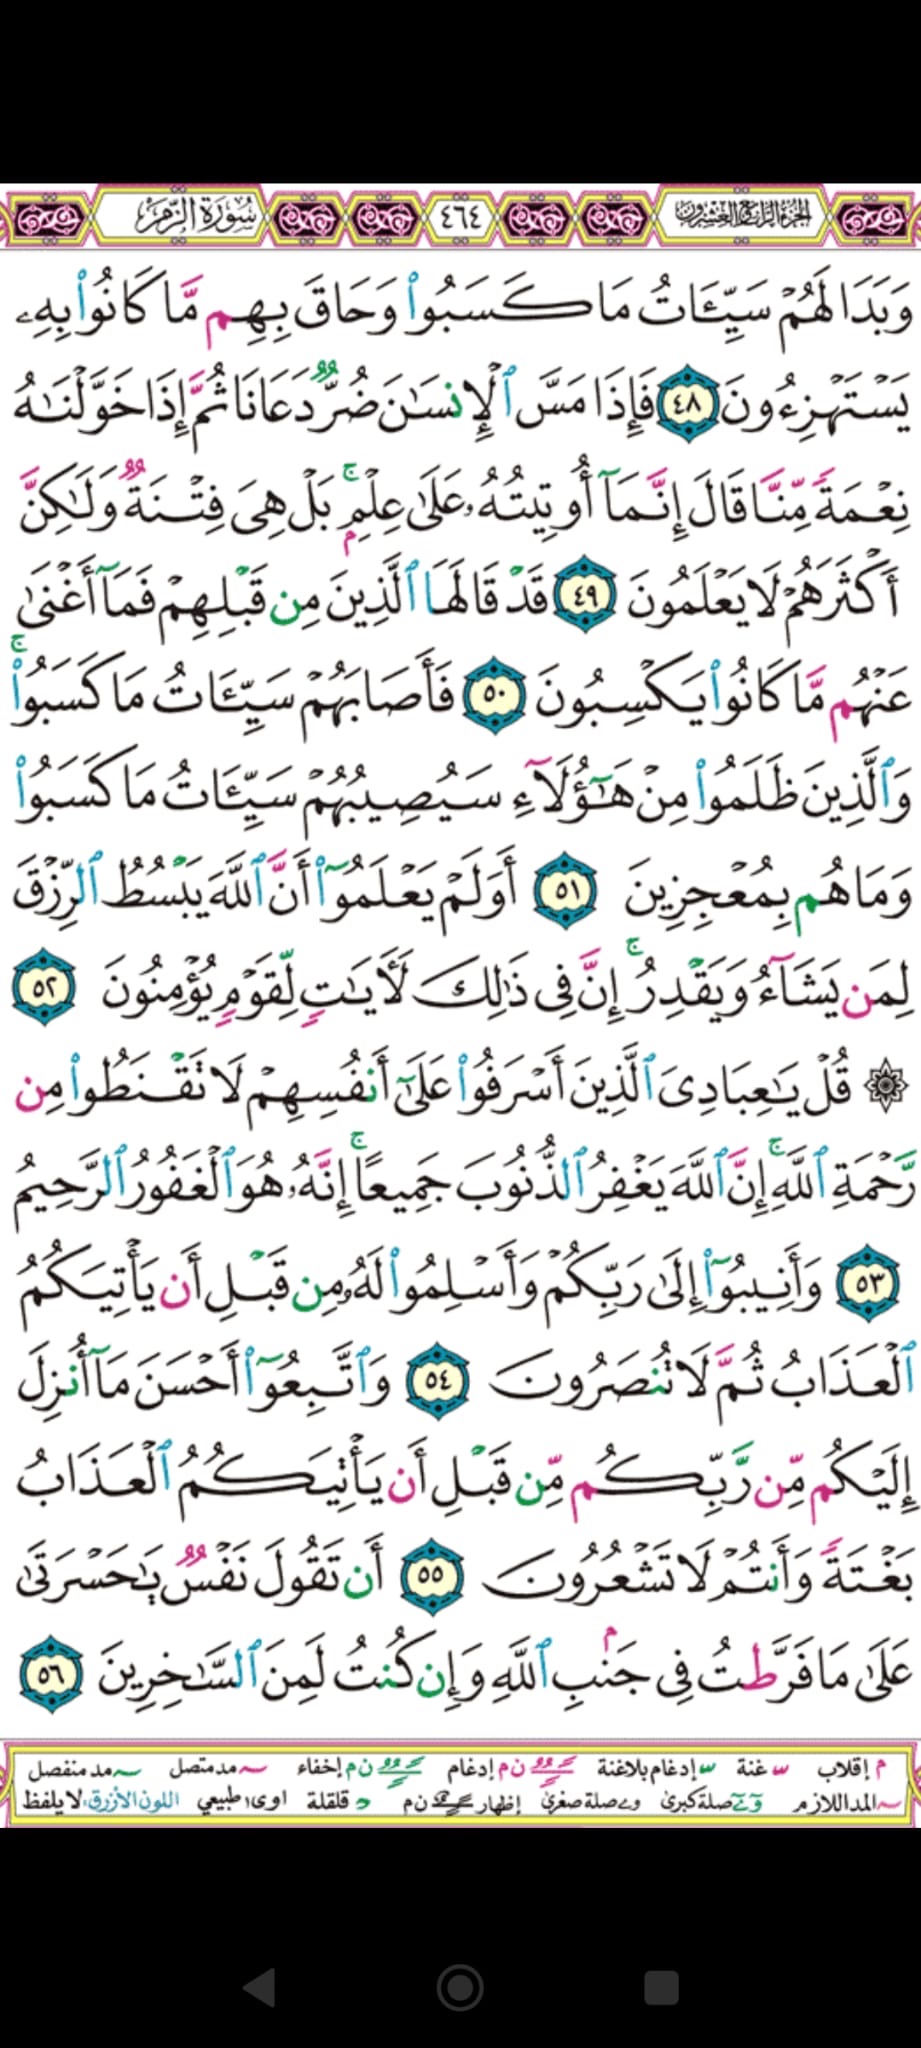 الجزء الرابع والعشرون ٤٦٤ سُورَةُ الزُّمَر
وَبَدَا لَهُمْ سَيِّـَٔاتُ مَا كَسَبُوا۟ وَحَاقَ بِهِم مَّا كَانُوا۟ بِهِۦ
يَسْتَهْزِءُونَ ٤٨ فَإِذَا مَسَّ ٱلْإِنسَـٰنَ ضُرٌّ دَعَانَا ثُمَّ إِذَا خَوَّلْنَـٰهُ
نِعْمَةً مِّنَّا قَالَ إِنَّمَآ أُوتِيتُهُۥ عَلَىٰ عِلْمٍۭ ۚ بَلْ هِىَ فِتْنَةٌ وَلَـٰكِنَّ
أَكْثَرَهُمْ لَا يَعْلَمُونَ ٤٩ قَدْ قَالَهَا ٱلَّذِينَ مِن قَبْلِهِمْ فَمَآ أَغْنَىٰ
عَنْهُم مَّا كَانُوا۟ يَكْسِبُونَ ٥٠ فَأَصَابَهُمْ سَيِّـَٔاتُ مَا كَسَبُوا۟ ۚ
وَٱلَّذِينَ ظَلَمُوا۟ مِنْ هَـٰٓؤُلَآءِ سَيُصِيبُهُمْ سَيِّـَٔاتُ مَا كَسَبُوا۟
وَمَا هُم بِمُعْجِزِينَ ٥١ أَوَلَمْ يَعْلَمُوٓا۟ أَنَّ ٱللَّهَ يَبْسُطُ ٱلرِّزْقَ
لِمَن يَشَآءُ وَيَقْدِرُ ۚ إِنَّ فِى ذَٰلِكَ لَـَٔايَـٰتٍ لِّقَوْمٍ يُؤْمِنُونَ ٥٢
۞ قُلْ يَـٰعِبَادِىَ ٱلَّذِينَ أَسْرَفُوا۟ عَلَىٰٓ أَنفُسِهِمْ لَا تَقْنَطُوا۟ مِن
رَّحْمَةِ ٱللَّهِ ۚ إِنَّ ٱللَّهَ يَغْفِرُ ٱلذُّنُوبَ جَمِيعًا ۚ إِنَّهُۥ هُوَ ٱلْغَفُورُ ٱلرَّحِيمُ
٥٣ وَأَنِيبُوٓا۟ إِلَىٰ رَبِّكُمْ وَأَسْلِمُوا۟ لَهُۥ مِن قَبْلِ أَن يَأْتِيَكُمُ
ٱلْعَذَابُ ثُمَّ لَا تُنصَرُونَ ٥٤ وَٱتَّبِعُوٓا۟ أَحْسَنَ مَآ أُنزِلَ
إِلَيْكُم مِّن رَّبِّكُم مِّن قَبْلِ أَن يَأْتِيَكُمُ ٱلْعَذَابُ
بَغْتَةً وَأَنتُمْ لَا تَشْعُرُونَ ٥٥ أَن تَقُولَ نَفْسٌ يَـٰحَسْرَتَىٰ
عَلَىٰ مَا فَرَّطتُ فِى جَنۢبِ ٱللَّهِ وَإِن كُنتُ لَمِنَ ٱلسَّـٰخِرِينَ ٥٦
م إقلاب غنة إدغام بلاغنة ن م إدغام ن م إخفاء مد متصل مد منفصل
المد اللازم صلة كبرى صلة صغرى إظهار ن م قلقلة اوى طبيعي اللون الأزرق لا يلفظ